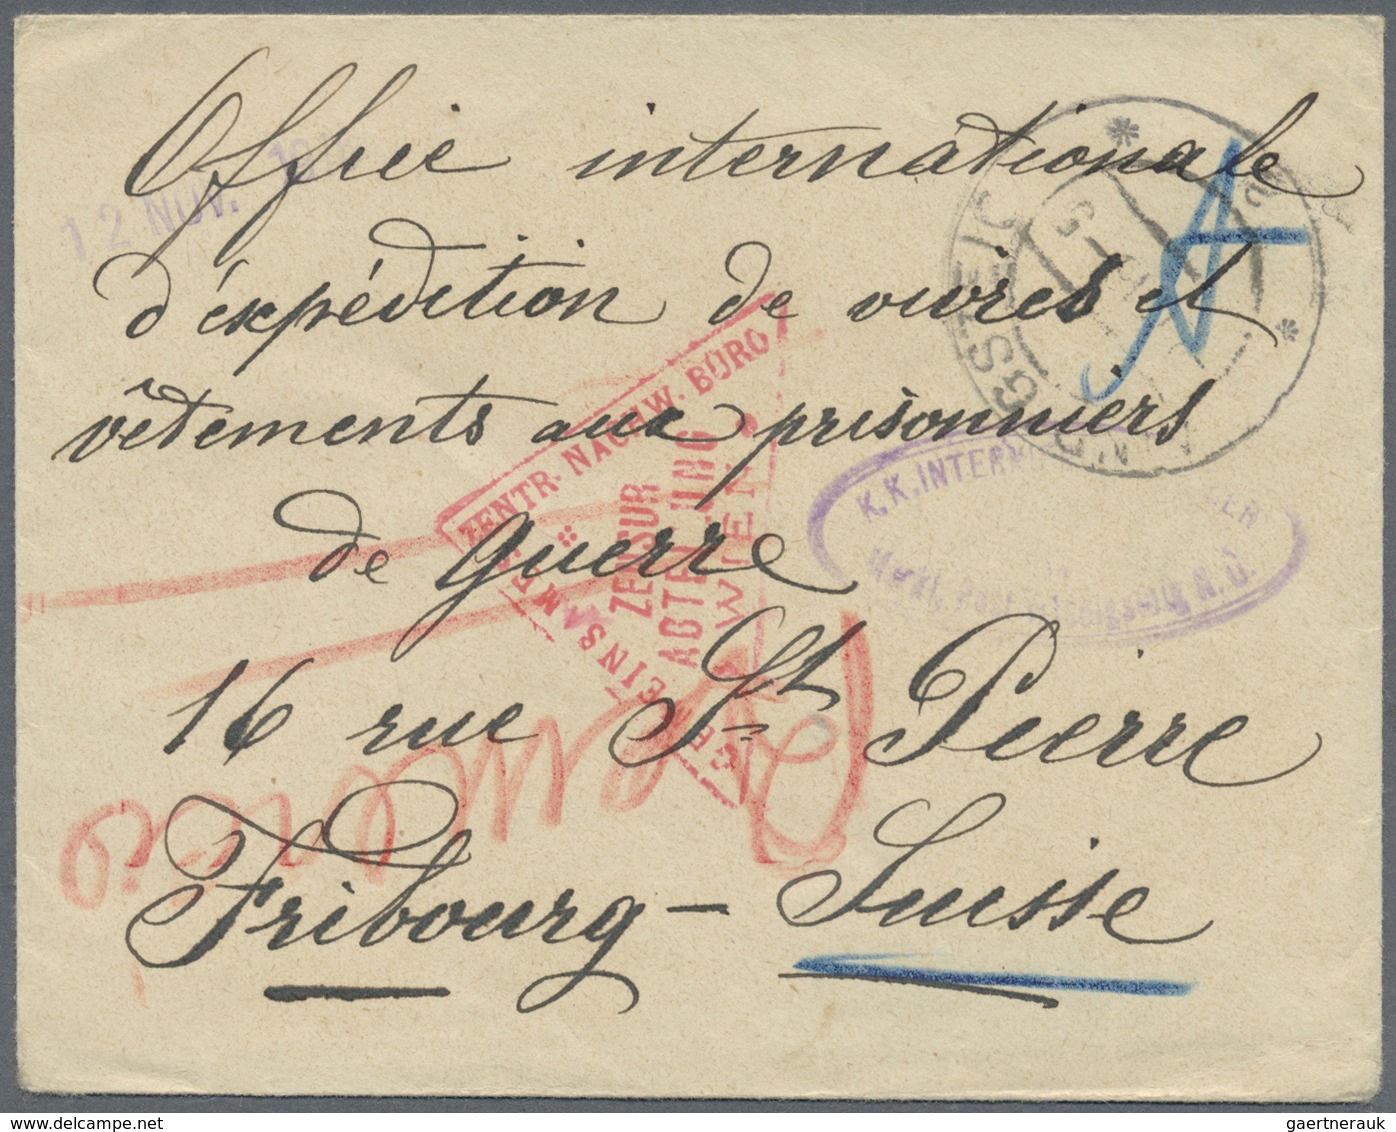 Office internationale
d'expédition de vivres et
vêtements aux prisonniers
de guerre
16 rue St. Pierre
Fribourg — Suisse
12 NOV.
ZENTR. NACHW. BÜRO
ZENSUR
WIEN
K.K. INTERN
N.Ö.
gaertnerauk